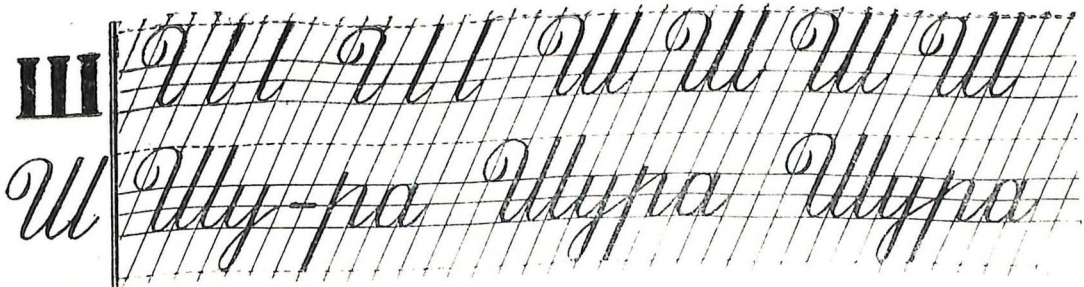 Ш Ш Ш Ш Ш
Ш Шу-ра Шура Шура